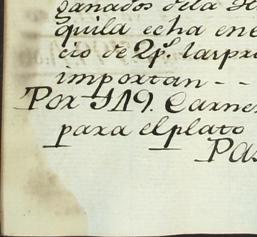 ganados dela H
quila echa en el
cio de 2p.s las pre
importan - -
Por 119. Carne
para el plato
Pa